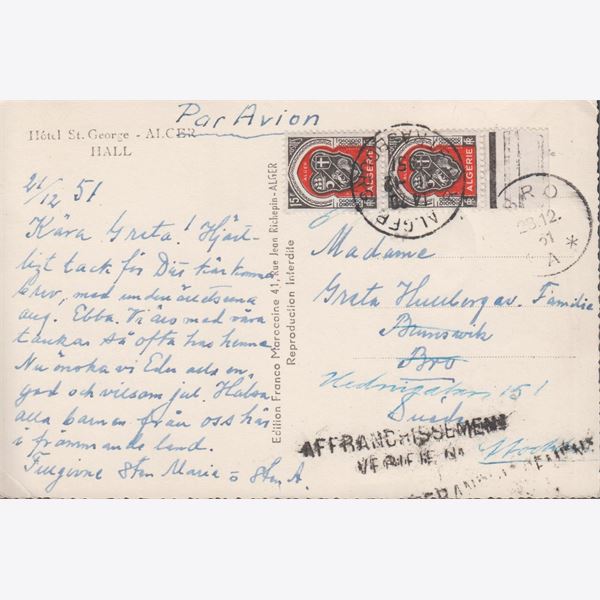 Par Avion
Hôtel St. George - ALGER
HALL
21/12 51
Kära Greta! Hjärt-
ligt tack för Ditt härkomna
brev, med underrättelserna
ang. Ebba. Vi äro med våra
tankar så ofta hos henne.
Nu önska vi Eder alla en
god och vilsam jul. Hälsa
alla barnen från oss här
i främmande land.
Sten Maria o Sten A.
Edition Franco Marocaine 41, Rue Jean Richepin - ALGER
Reproduction Interdite
15 F ALGER ALGÉRIE RF
ALGÉRIE RF
ALGER
BRO
23.12.
51
A *
Madame
Greta Hullbergav. Familie
Brunswik
Bro
Hedvigsgatan 151
AFFRANCHISSEMENT
VÉRIFIÉ N°